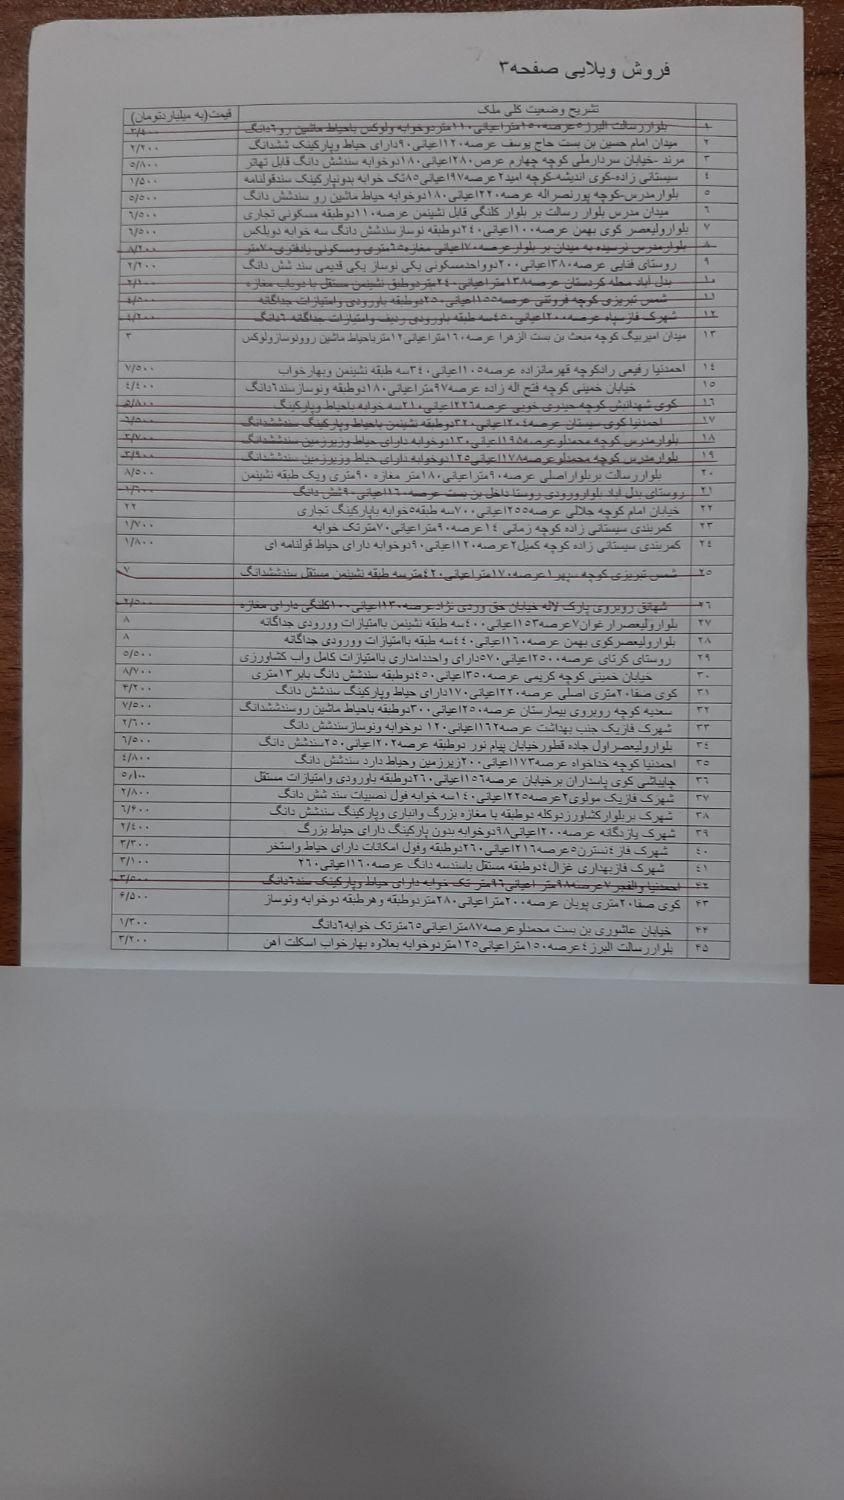 فروش ویلایی صفحه۳
تشریح وضعیت کلی ملک قیمت(به میلیاردتومان)
۱ بلواررسالت البرز۵عرصه۱۵۰متراعیانی۱۱۰متردوخوابه ولوکس باحیاط ماشین رو۶دانگ ۳/۴۰۰
۲ میدان امام حسین بن بست حاج یوسف عرصه۱۲۰اعیانی۹۰دارای حیاط وپارکینک ششدانگ ۲/۲۰۰
۳ مرند -خیابان سردارملی کوچه چهارم عرص۲۸۰اعیانی۱۸۰دوخوابه سندشش دانگ قابل تهاتر ۵/۸۰۰
۴ سیستانی زاده-کوی اندیشه-کوچه امید۲عرصه۹۷اعیانی۸۵تک خوابه بدونپارکینک سندقولنامه ۱/۵۰۰
۵ بلوارمدرس-کوچه پورنصراله عرصه۲۲۰اعیانی۱۸۰دوخوابه حیاط ماشین رو سندشش دانگ ۵/۵۰۰
۶ میدان مدرس بلوار رسالت بر بلوار کلنگی قابل نشیمن عرصه۱۱۰دوطبقه مسکونی تجاری ۶/۵۰۰
۷ بلوارولیعصر کوی بهمن عرصه۱۰۰اعیانی۲۴۰دوطبقه نوسازسندشش دانگ سه خوابه دوبلکس ۶/۵۰۰
۸ بلوارمدرس نرسیده به میدان بر بلوارعرصه۷۰اعیانی مغازه۶۵متری ومسکونی یادفتری۷۰متر ۸/۲۰۰
۹ روستای قنایی عرصه۳۸۰اعیانی۲۰۰دوواحدمسکونی یکی نوساز یکی قدیمی سند شش دانگ ۲/۲۰۰
۱۰ بدل آباد محله کردستان عرصه۱۳۸متراعیانی۲۴۰متردوطبق نشینمن مستقل با دوباب مغازه ۲/۱۰۰
۱۱ شمس تبریزی کوچه فروتنی عرصه۱۵۵اعیانی۲۵۰دوطبقه باورودی وامتیازات جداگانه ۴/۵۰۰
۱۲ شهرک فازسپاه عرصه۲۰۰اعیانی۴۵۰سه طبقه باورودی ردیف وامتیازات جداگانه ۶دانگ ۹/۲۰۰
۱۳ میدان امیربیگ کوچه مبعث بن بست الزهرا عرصه۱۶۰متراعیانی۱۲متریاحیاط ماشین روونوسازولوکس ۳
۱۴ احمدنیا رفیعی رادکوچه قهرمانزاده عرصه۱۰۵اعیانی۳۴۰سه طبقه نشینمن وبهارخواب ۷/۵۰۰
۱۵ خیابان خمینی کوچه فتح اله زاده عرصه۹۷متراعیانی۱۸۰دوطبقه ونوسازسند۶دانگ ۴/۴۰۰
۱۶ کوی شهدانبش کوچه حیدری خویی عرصه۲۲۶اعیانی۲۱۰سه خوابه باحیاط وپارکینگ ۵/۸۰۰
۱۷ احمدنیا کوی سیستان عرصه۲۰۴اعیانی۳۲۰دوطبقه نشیمن باحیاط وپارکینگ سندششدانگ ۶/۵۰۰
۱۸ بلوارمدرس کوچه محمدلوعرصه۱۹۵اعیانی۱۳۰دوخوابه دارای حیاط وزیرزمین سندششدانگ ۳/۷۰۰
۱۹ بلوارمدرس کوچه محمدلوعرصه۱۷۸اعیانی۱۲۵دوخوابه دارای حیاط وزیرزمین سندششدانگ ۳/۹۰۰
۲۰ بلواررسالت بربلواراصلی عرصه۹۰متراعیانی۱۸۰متر مغازه ۹۰متری ویک طبقه نشیمن ۸/۵۰۰
۲۱ روستای بدل آباد بلوارورودی روستا داخل بن بست عرصه۱۶۰اعیانی۹۰شش دانگ ۱/۶۰۰
۲۲ خیابان امام کوچه جلالی عرصه۲۵۵اعیانی۷۰۰سه طبقه۵خوابه باپارکینگ تجاری ۲۲
۲۳ کمربندی سیستانی زاده کوچه زمانی ۱۴عرصه۹۰متراعیانی۷۰مترتک خوابه ۱/۷۰۰
۲۴ کمربندی سیستانی زاده کوچه کمیل۲عرصه۱۲۰اعیانی۹۰دوخوابه دارای حیاط قولنامه ای ۱/۸۰۰
۲۵ شمس تبریزی کوچه سپهر۱عرصه۱۷۰متراعیانی۴۲۰مترسه طبقه نشینمن مستقل سندششدانگ ۷
۲۶ شهانق روبروی پارک لاله خیابان حق وردی نژادعرصه۱۳۰اعیانی۱۰۰کلنگی دارای مغازه ۲/۵۰۰
۲۷ بلوارولیعصرارغوان۷عرصه۱۵۳اعیانی۴۰۰سه طبقه نشیمن باامتیازات وورودی جداگانه ۸
۲۸ بلوارولیعصرکوی بهمن عرصه۱۶۰اعیانی۴۴۰سه طبقه باامتیازات وورودی جداگانه ۸
۲۹ روستای کرتای عرصه۲۵۰۰اعیانی۵۷۰دارای واحددامداری باامتیازات کامل وآب کشاورزی ۵/۵۰۰
۳۰ خیابان خمینی کوچه کریمی عرصه۳۵۰اعیانی۴۵۰دوطبقه سندشش دانگ بابر۱۳متری ۸/۷۰۰
۳۱ کوی صفا۲۰متری اصلی عرصه۲۲۰اعیانی۱۷۰دارای حیاط وپارکینگ سندشش دانگ ۴/۲۰۰
۳۲ سعدیه کوچه روبروی بیمارستان عرصه۲۵۰اعیانی۳۰۰دوطبقه باحیاط ماشین روسندششدانگ ۷/۵۰۰
۳۳ شهرک فازیک جنب بهداشت عرصه۱۶۲اعیانی۱۲۰ دوخوابه ونوسازسندشش دانگ ۲/۶۰۰
۳۴ بلوارولیعصراول جاده قطورخیابان پیام نور دوطبقه عرصه۲۰۲اعیانی۲۵۰سندشش دانگ ۶/۵۰۰
۳۵ احمدنیا کوچه خداخواه عرصه۱۷۳اعیانی۲۰۰زیرزمین وحیاط دارد سندشش دانگ ۴/۸۰۰
۳۶ چاپیاشی کوی پاسداران برخیابان عرصه۱۵۶اعیانی۲۶۰دوطبقه باورودی وامتیازات مستقل ۵/۱۰۰
۳۷ شهرک فازیک مولوی۲عرصه۲۲۵اعیانی۱۴۰سه خوابه فول نصبیات سند شش دانگ ۲/۸۰۰
۳۸ شهرک بربلوارکشاورزدوکله دوطبقه با مغازه بزرگ وانباری وپارکینگ سندشش دانگ ۶/۴۰۰
۳۹ شهرک یازدگانه عرصه۲۰۰اعیانی۹۸دوخوابه بدون پارکینگ دارای حیاط بزرگ ۲/۴۰۰
۴۰ شهرک فاز۴نسترن۵عرصه۲۱۶اعیانی۲۶۰دوطبقه وفول امکانات دارای حیاط واستخر ۳/۳۰۰
۴۱ شهرک فازبهداری غزال۴دوطبقه مستقل باسندسه دانگ عرصه۱۶۰اعیانی۲۶۰ ۳/۱۰۰
۴۲ احمدنیا والفجر۷عرصه۹۸متر اعیانی۹۶متر تک خوابه دارای حیاط وپارکینک سند۶دانگ ۳/۵۰۰
۴۳ کوی صفا۲۰متری پویان عرصه۲۰۰متراعیانی۲۸۰متردوطبقه وهرطبقه دوخوابه ونوساز ۶/۵۰۰
۴۴ خیابان عاشوری بن بست محمدلوعرصه۸۷متراعیانی۶۵مترتک خوابه۶دانگ ۱/۳۰۰
۴۵ بلواررسالت البرز۴عرصه۱۵۰متراعیانی۱۲۵متردوخوابه بعلاوه بهارخواب اسکلت آهن ۳/۲۰۰